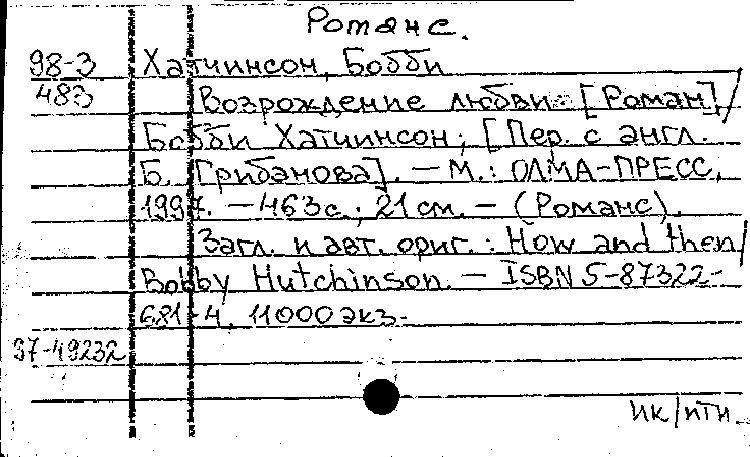 Романс.
98-3 Хатчинсон, Бобби
483 Возрождение любви: [Роман] /
Бобби Хатчинсон; [Пер. с англ.
Б. Грибанова]. — М.: ОЛМА-ПРЕСС,
1997. — 463 с.; 21 см. — (Романс).
Загл. и авт. ориг.: How and then /
Bobby Hutchinson. — ISBN 5-87322-
681-4, 11000 экз.
97-49232
ик/пти